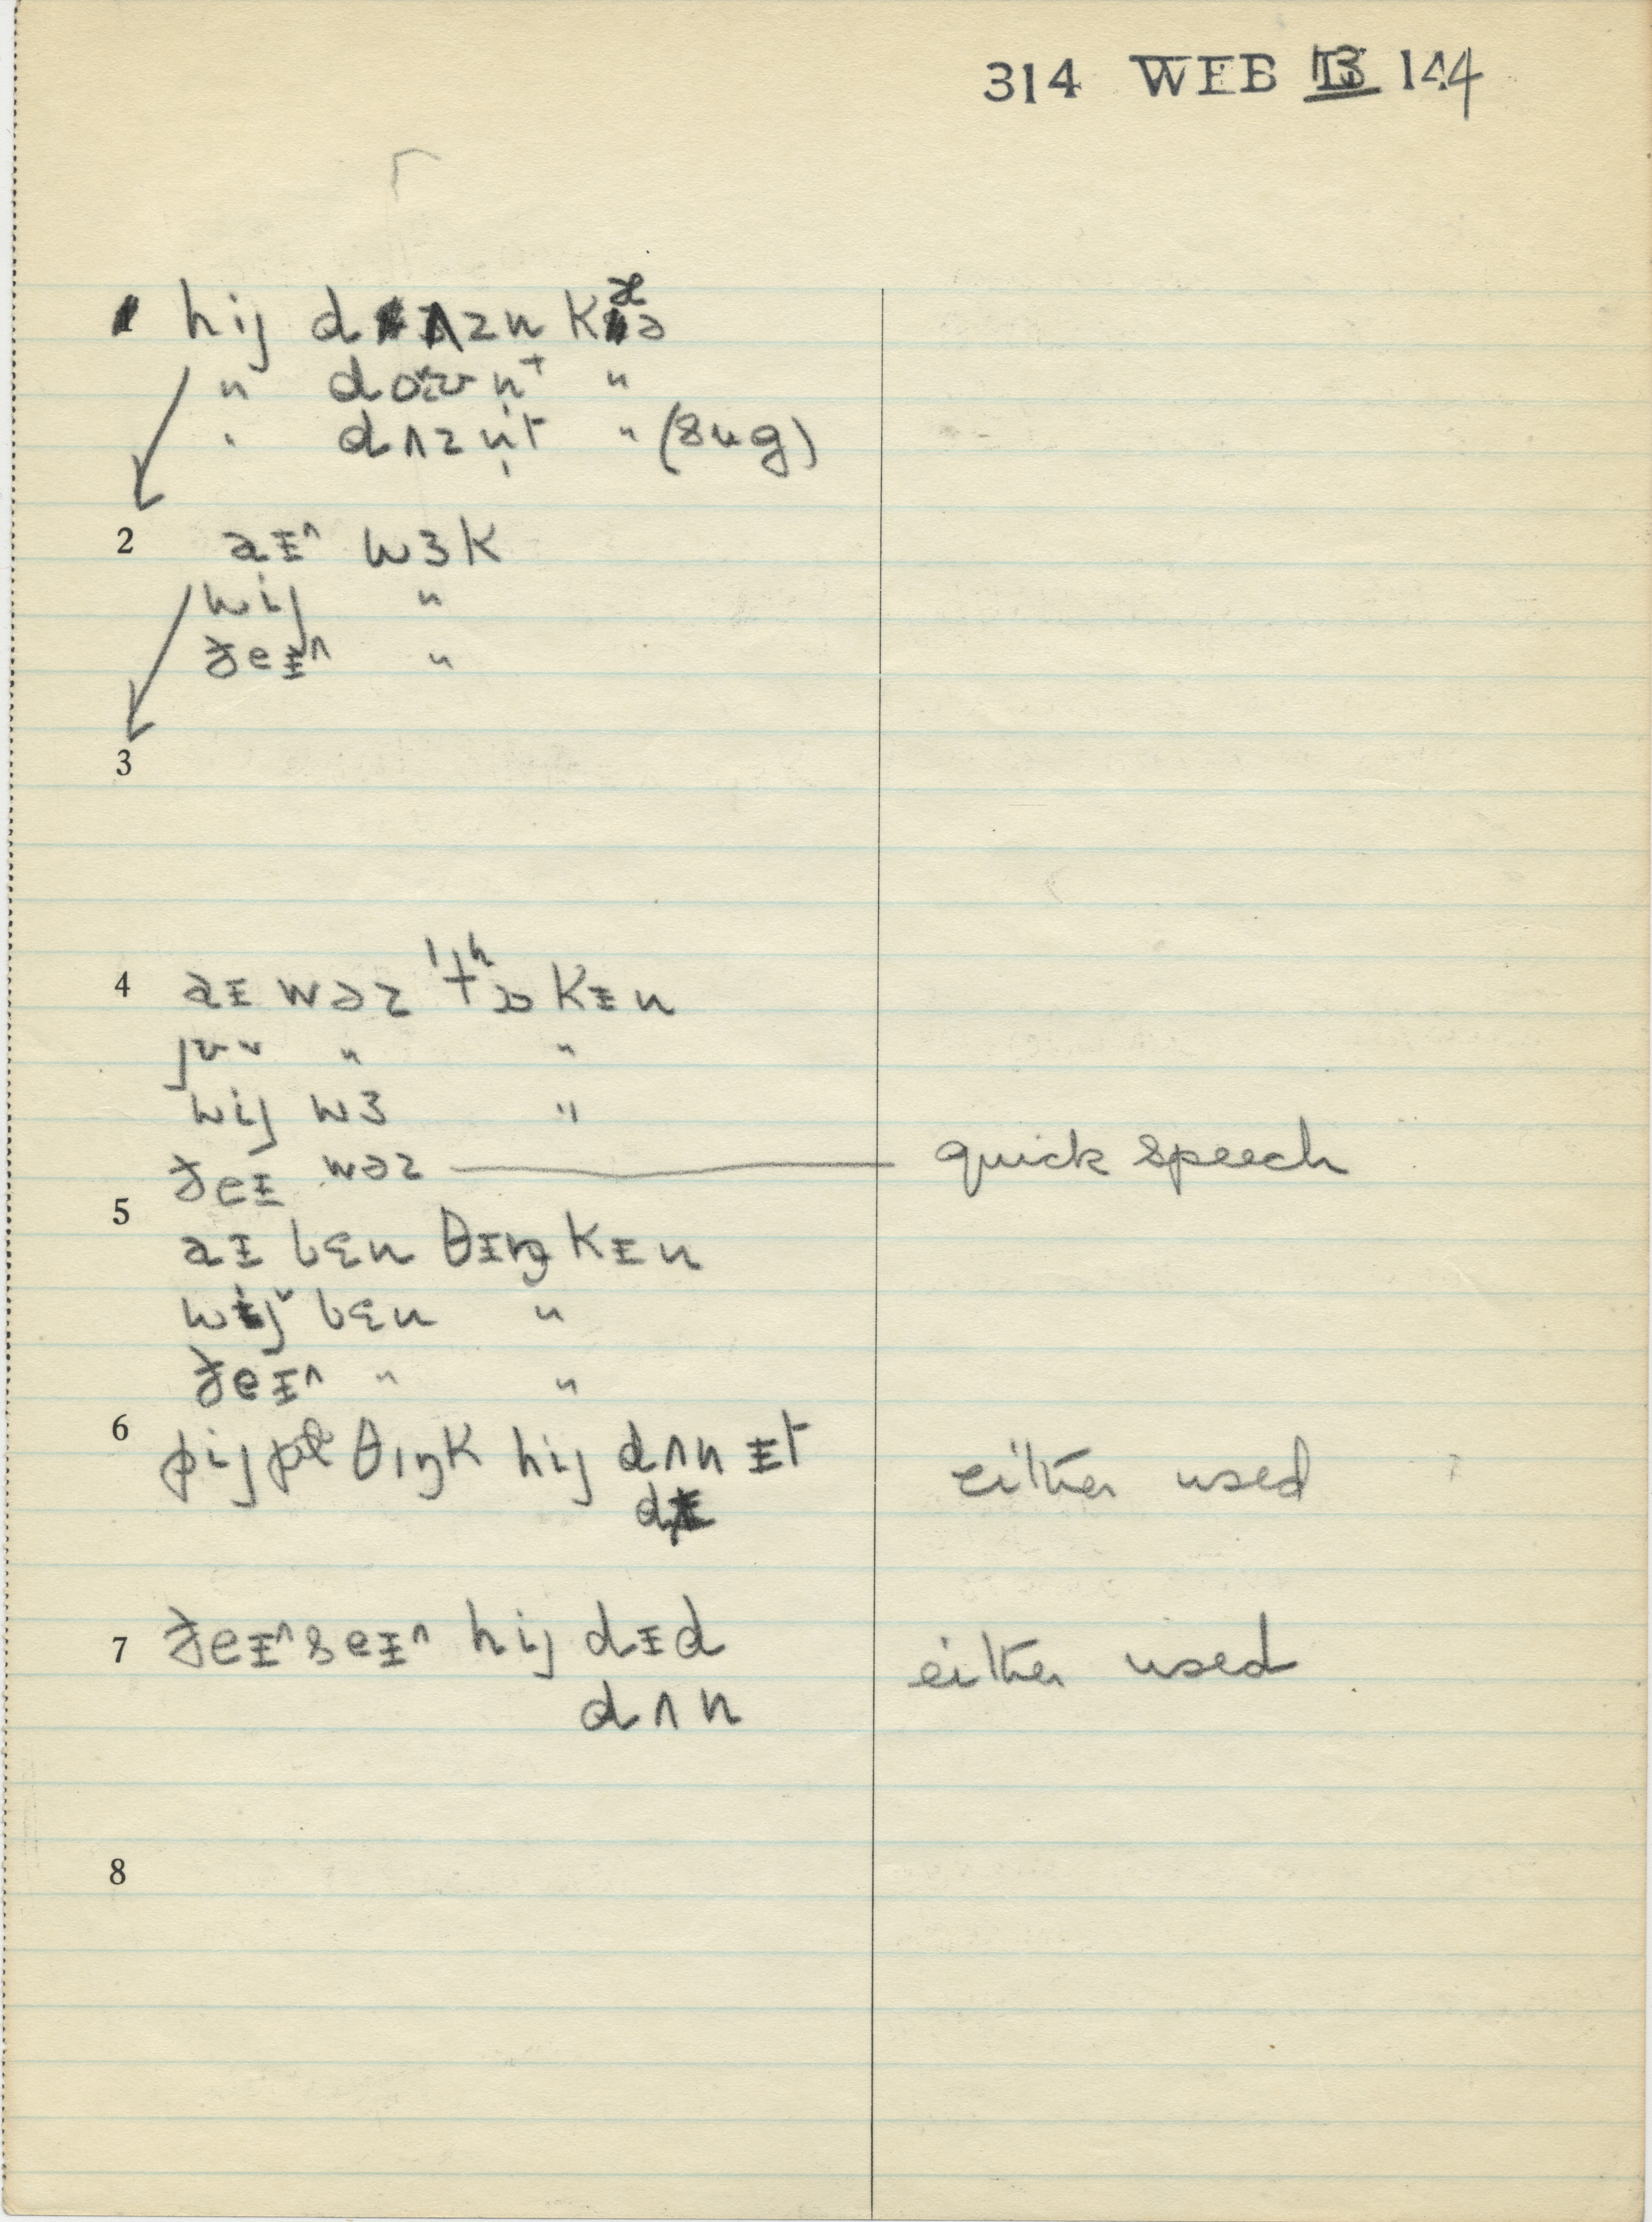 314 WEB 13 144
1 hij dʌzn kæə
" doʊn̩t "
" dʌzn̩t " (sug)
2 aᵻ^ wɜk
wij "
ðeᵻ^ "
3
4 aᵻ wəz 'tʰɔkᵻn
jʊ " "
wij wɜ "
ðeᵻ wəz — quick speech
5
aᵻ bɛn θᵻŋkᵻn
wij ˅ bɛn "
ðeᵻ^ " "
6 pijpl θɪŋk hij dʌn ᵻt either used
dᵻ
7 ðeᵻ^ seᵻ^ hij dᵻd either used
dʌn
8